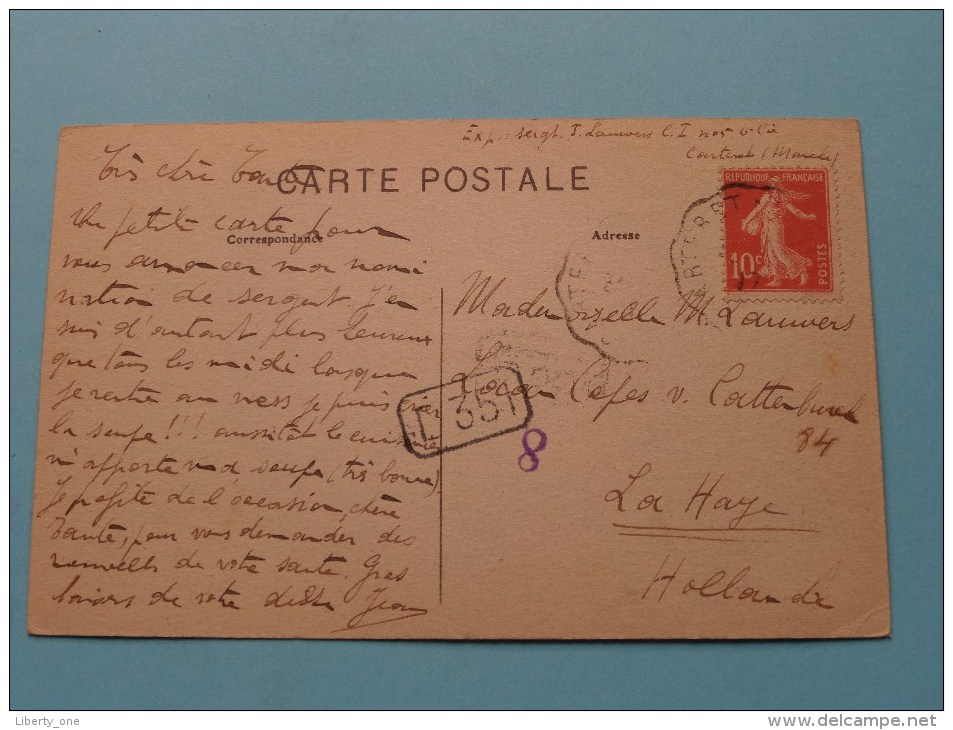 Exp. sergt. J. Lauwers C. I. no 5 6e Cie
Carteret (Manche)
CARTE POSTALE
Correspondance
Adresse
REPUBLIQUE FRANÇAISE
10c
POSTES
CARTERET
Très chère Tante
Une petite carte pour
vous annoncer ma nomi
nation de sergent. J'en
suis d'autant plus heureux
que tous les midi lorsque
je rentre au mess je puis crier
la soupe!!! aussitôt le cuisinier
m'apporte ma soupe (très bonne).
Je profite de l'occasion, chère
Tante, pour vous demander des
nouvelles de votre santé. Gros
baisers de votre Jean
Mademoiselle M. Lauwers
Jacob Cafes v. Cattenburch
84
La Haye
Hollande
L 351
8
Liberty_one
http://www.delcampe.net